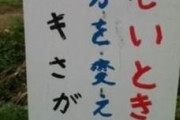 しいとき
方を変え
キさが